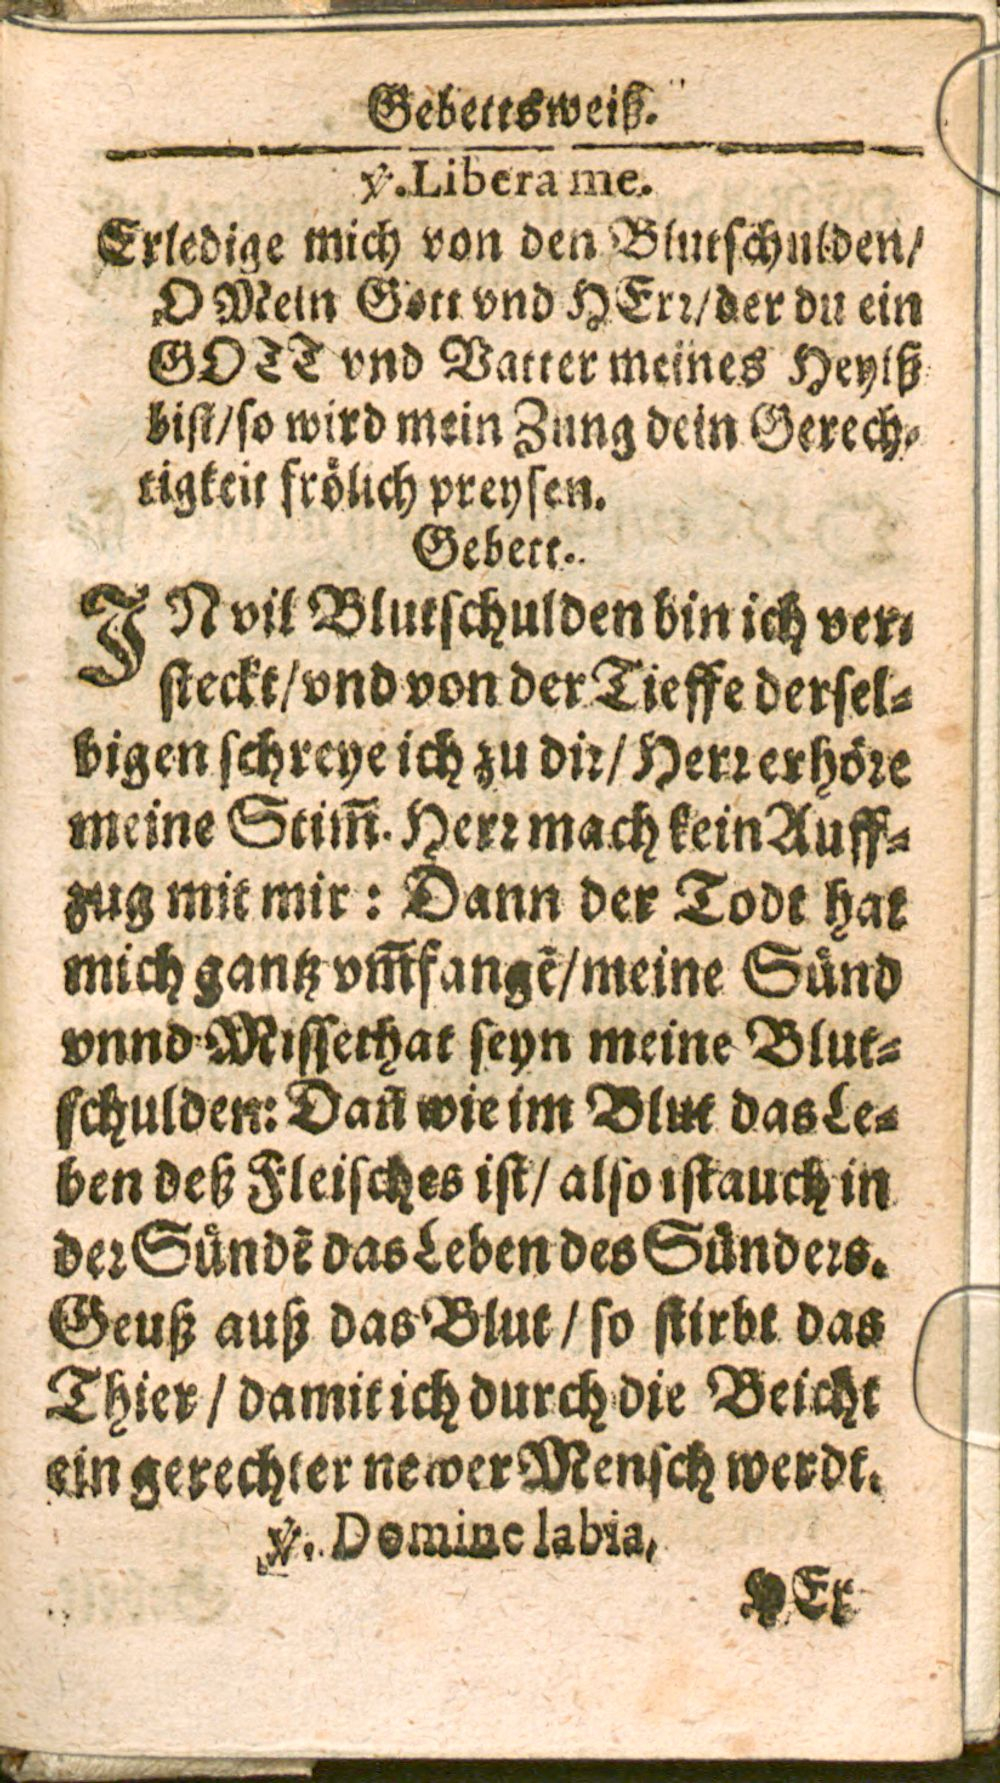 Gebettsweiß.
℣. Libera me.
Erledige mich von den Blutschulden/
O Mein Gott vnd HErr/ der du ein
GOTT vnd Vatter meines Heylß
bist/ so wird mein Zung dein Gerech-
tigkeit frölich preysen.
Gebett.
IN vil Blutschulden bin ich ver-
steckt/ vnd von der Tieffe dersel-
bigen schreye ich zu dir/ Herr erhöre
meine Stim̄. Herr mach kein Auff-
zug mit mir: Dann der Todt hat
mich gantz vm̄fangē/ meine Sünd
vnnd Missethat seyn meine Blut-
schulden: Dan̄ wie im Blut das Le-
ben deß Fleisches ist/ also ist auch in
der Sündē das Leben des Sünders.
Geuß auß das Blut/ so stirbt das
Thier/ damit ich durch die Beicht
ein gerechter newer Mensch werdt.
℣. Domine labia,
HEr